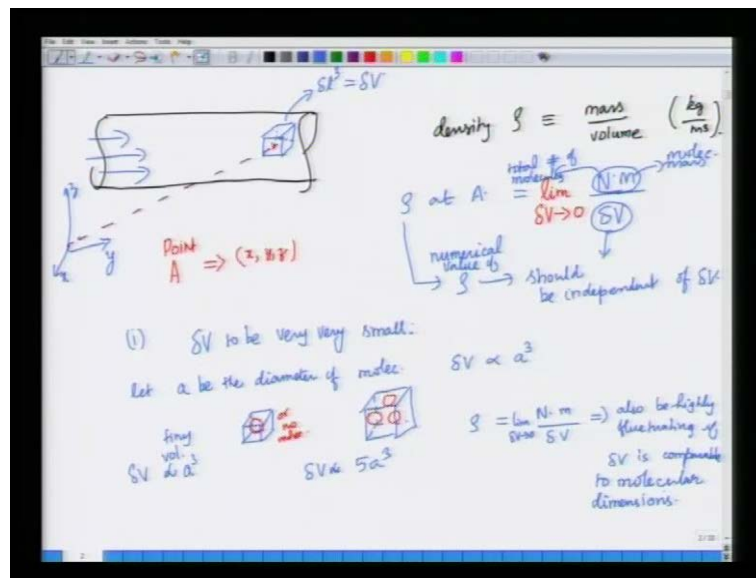 File Edit View Insert Actions Tools Help
δl³ = δV
density ρ ≡ mass / volume (kg / m3).
total # of molecules
molec. mass
ρ at A. = lim δV→0 N·m / δV
z
y
x
Point A ⇒ (x, y, z)
numerical value of ρ → should be independent of δV.
(1) δV to be very very small.
let a be the diameter of molec. δV ∝ a³
tiny vol.
δV ∝ a³
or no molec.
δV ∝ 5a³
ρ = lim δV→0 N·m / δV ⇒ also be highly fluctuating if δV is comparable to molecular dimensions.
2